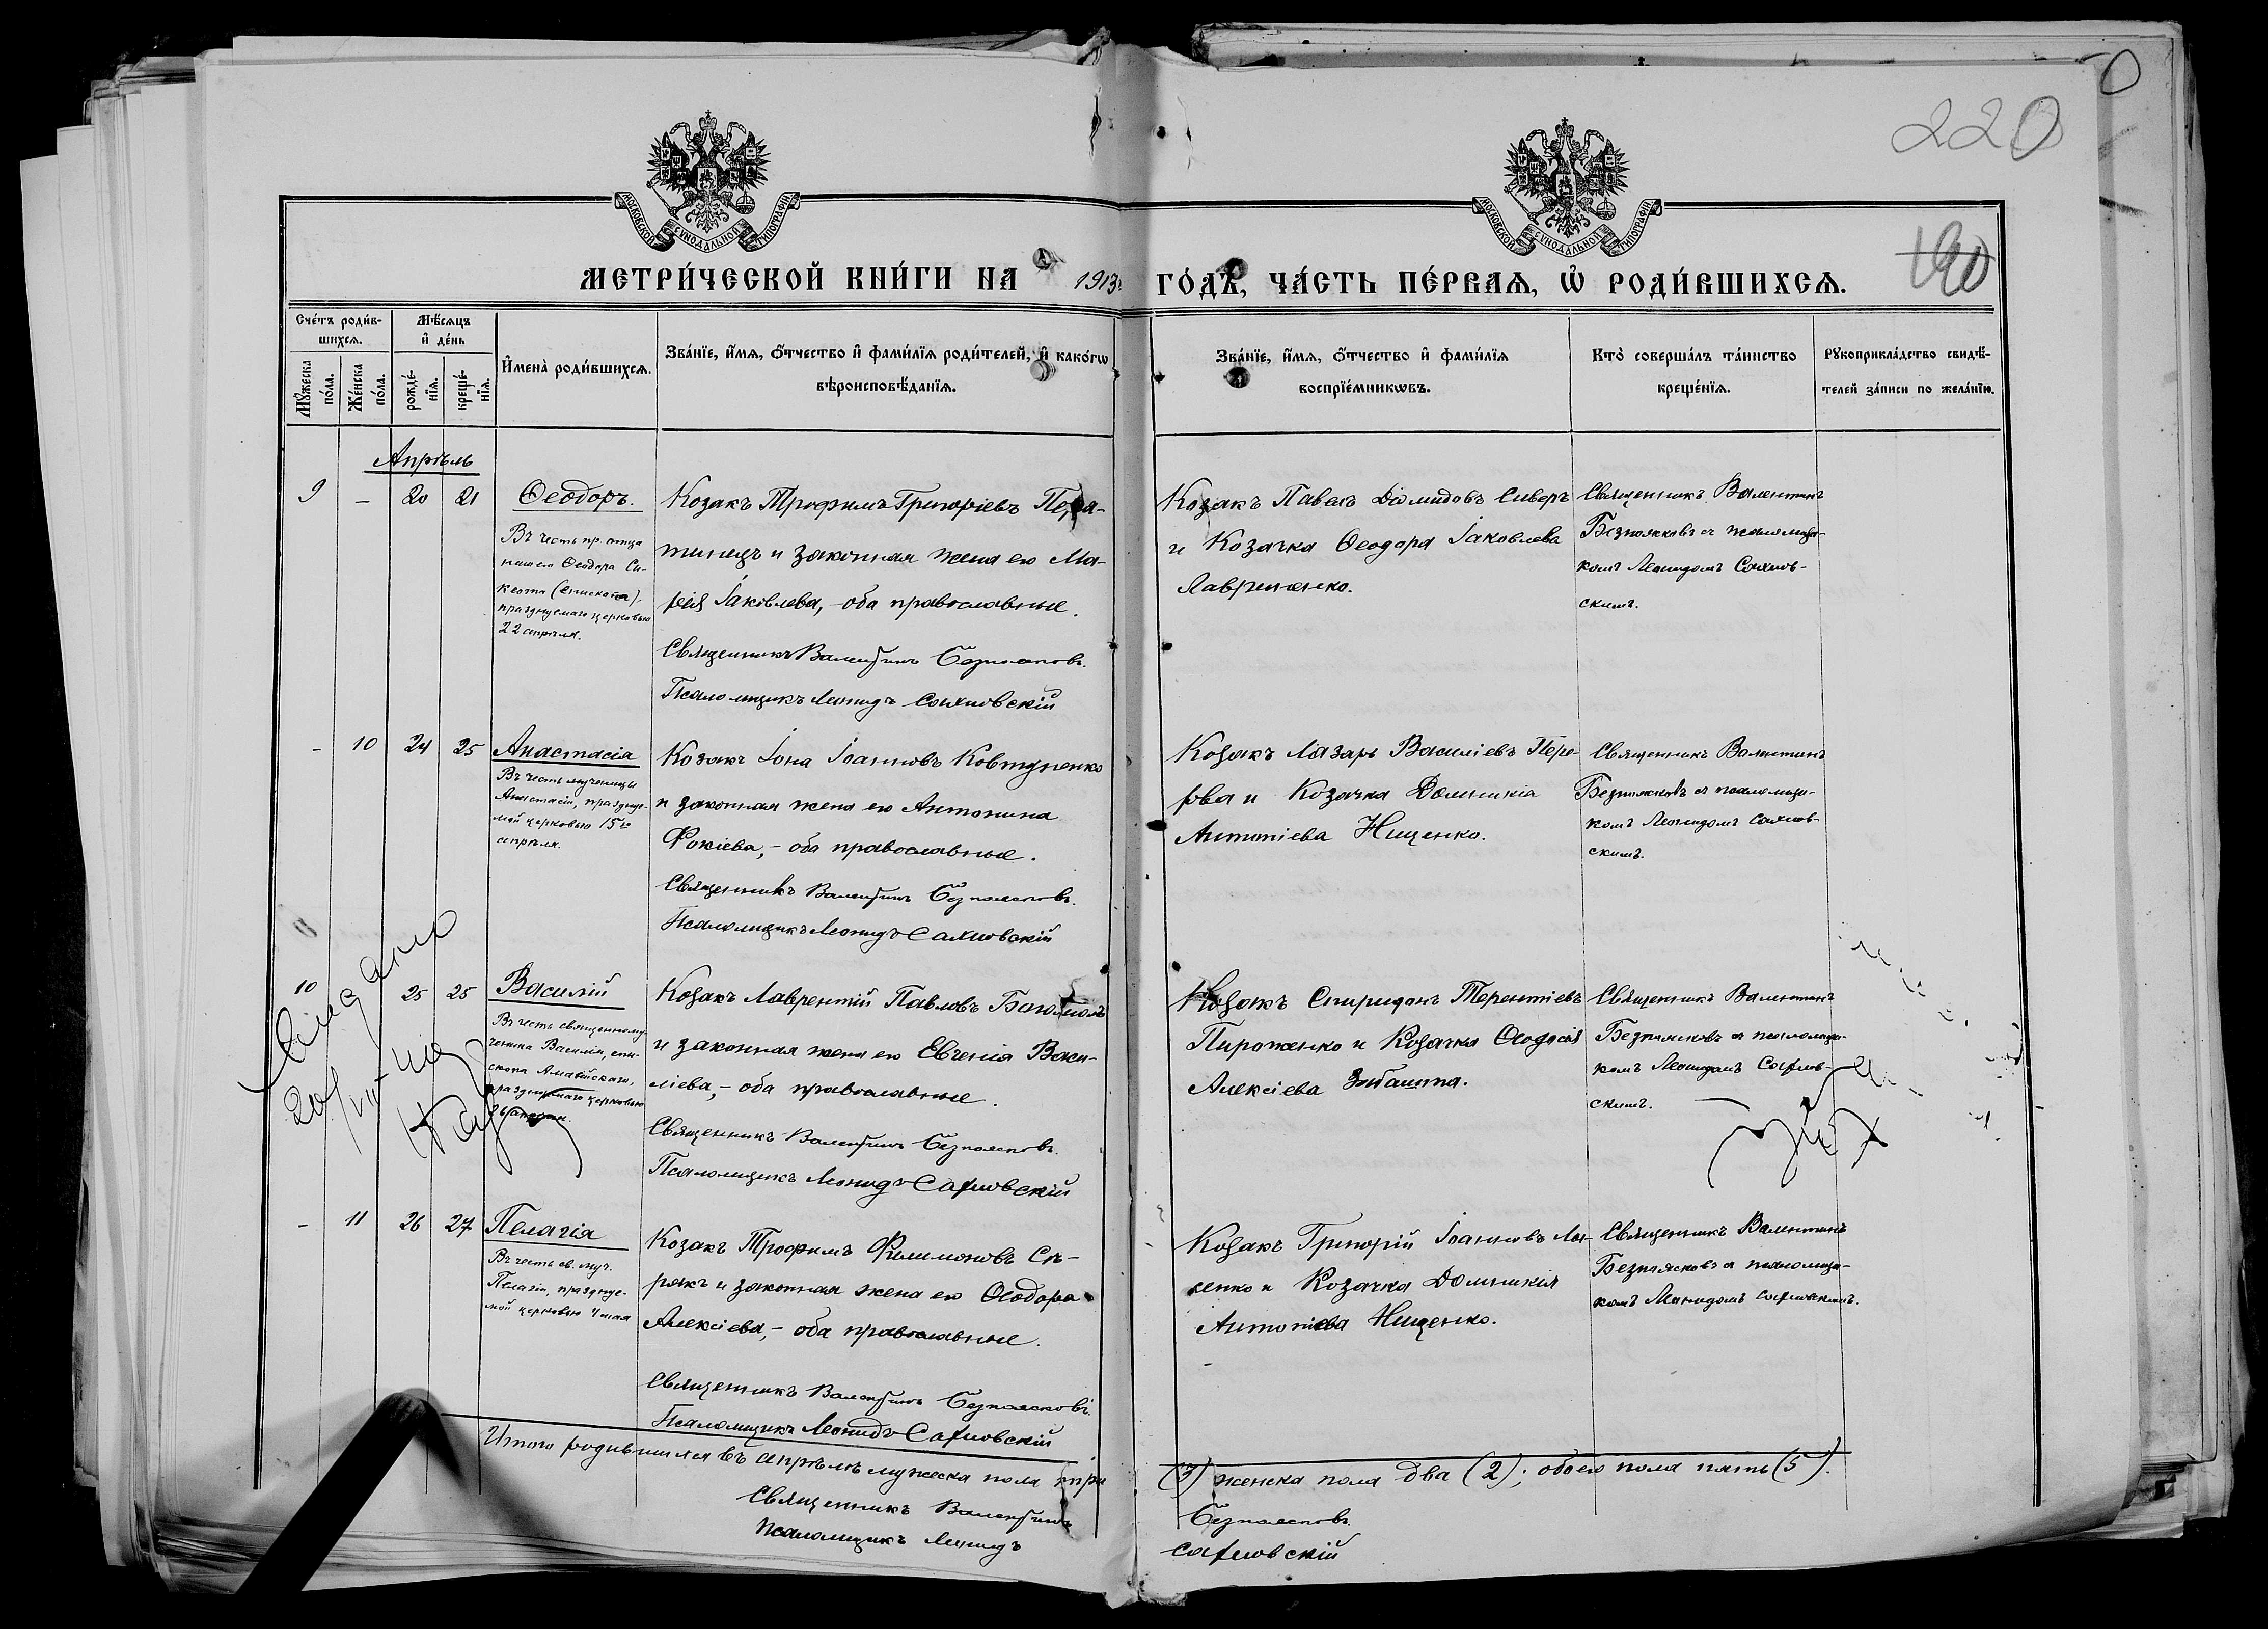 220
МОСКОВСКОЙ СѴНОДАЛЬНОЙ ТИПОГРАФІИ
МОСКОВСКОЙ СѴНОДАЛЬНОЙ ТИПОГРАФІИ
190
МЕТРИ́ЧЕСКОЙ КНИ́ГИ НА 1913 ГО́ДЪ, ЧА́СТЬ ПЕ́РВАѦ, Ѡ҆ РОДИ́ВШИХСѦ.
Сче́тъ роди́в-
шихсѧ.
Мꙋ́жеска по́ла.
Же́нска по́ла.
Мѣ́сѧцъ и҆ де́нь
рожде́-
нїѧ.
креще́-
нїѧ.
И҆мена̀ роди́вшихсѧ.
Зва́нїе, и҆́мѧ, ѻ҆́тчество и҆ фами́лїѧ роди́телей, и҆ како́гѡ
вѣроисповѣ́данїѧ.
Зва́нїе, и҆́мѧ, ѻ҆́тчество и҆ фами́лїѧ
воспрїе́мникѡвъ.
Кто̀ соверша́лъ та́инство
креще́нїѧ.
Рꙋкоприкла́дство свидѣ́-
телей за́писи по жела́нїю.
Апрѣль
9 – 20 21
Ѳеодоръ.
Въ честь пр. отца
нашего Ѳеодора Си-
кеота (епископа),
празднуемаго церковью
22 апрѣля.
Козакъ Трофимъ Григоріевъ Пера-
тинецъ и законная жена его Ма-
рія Іаковлева, – оба православные.
Священникъ Валентинъ Безпоясковъ.
Псаломщикъ Леонидъ Сахновскій
Козакъ Павелъ Діомидовъ Сиверъ
и Козачка Ѳеодора Іаковлева
Лавриненко.
Священникъ Валентинъ
Безпоясковъ съ псаломщи-
комъ Леонидомъ Сахнов-
скимъ.
– 10 24 25
Анастасія
Въ честь мученицы
Анастасіи, праздну­е-
мой церковью 15го
апрѣля.
Козакъ Іона Іоанновъ Ковтуненко
и законная жена его Антонина
Фокіева, – оба православные.
Священникъ Валентинъ Безпоясковъ.
Псаломщикъ Леонидъ Сахновскій
Козакъ Лазарь Василіевъ Пере-
рва и Козачка Домникія
Антоніева Нищенко.
Священникъ Валентинъ
Безпоясковъ съ псаломщи-
комъ Леонидомъ Сахнов-
скимъ.
10 25 25
Василій
Въ честь священному-
ченика Василія, епи-
скопа Амасійскаго,
празднуемаго церковью
26 апрѣля.
Козакъ Лаврентій Павловъ
и законная жена его Евгенія Васи-
ліева, – оба православные.
Священникъ Валентинъ Безпоясковъ.
Псаломщикъ Леонидъ Сахновскій
Козакъ Спиридонъ Терентіевъ
Пироженко и Козачка Ѳеодосія
Алексіева
Священникъ Валентинъ
Безпоясковъ съ псаломщи-
комъ Леонидомъ Сахнов-
скимъ.
– 11 26 27
Пелагія
Въ честь св. муч.
Пелагіи, праздну­е-
мой церковью 4 мая
Козакъ Трофимъ Филимоновъ Сѣ-
рякъ и законная жена его Ѳеодора
Алексіева, – оба православные.
Священникъ Валентинъ Безпоясковъ.
Псаломщикъ Леонидъ Сахновскій
Козакъ Григорій Іоанновъ
сенко и Козачка Домникія
Антоніева Нищенко.
Священникъ Валентинъ
Безпоясковъ съ псаломщи-
комъ Леонидомъ Сахновскимъ.
Итого родившихся въ апрѣлѣ мужеска пола три (3) женска пола два (2); обоего пола пять (5).
Священникъ Валентинъ Безпоясковъ
Псаломщикъ Леонидъ Сахновскій